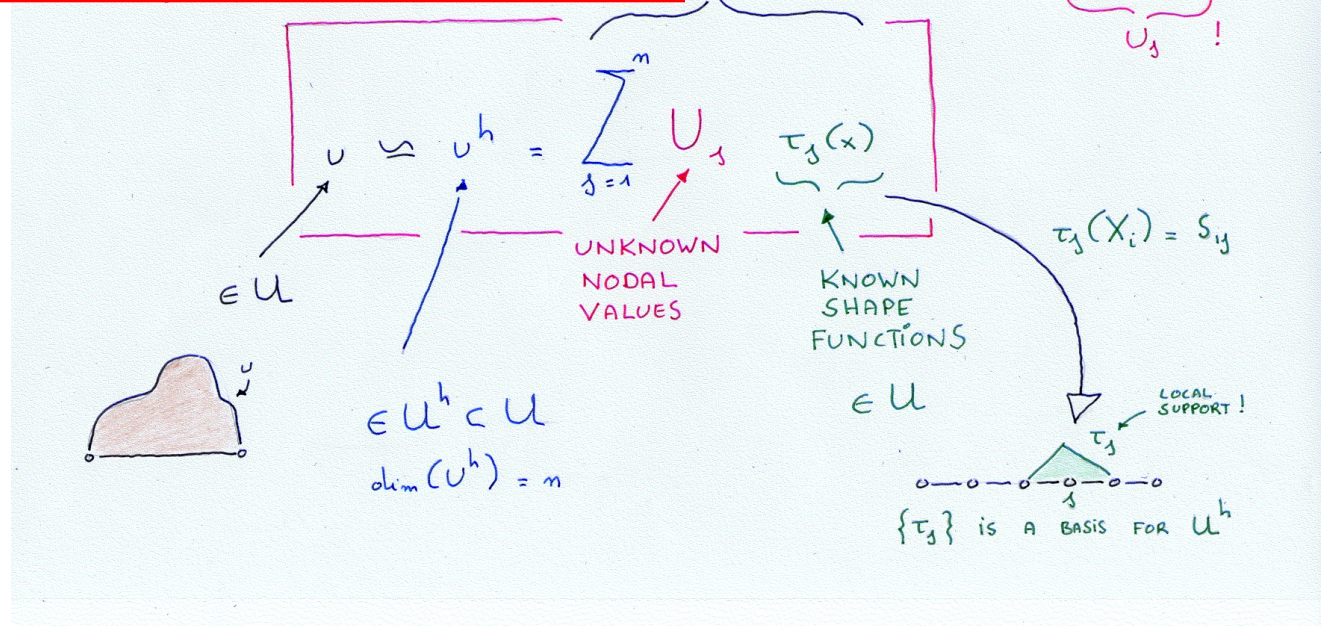 U_j !
u ≃ u^h = ∑_{j=1}^{n} U_j τ_j(x)
τ_j(X_i) = δ_ij
UNKNOWN
NODAL
VALUES
KNOWN
SHAPE
FUNCTIONS
∈ U
u
∈ U^h ⊂ U
dim(U^h) = n
∈ U
LOCAL
SUPPORT!
τ_j
j
{τ_j} IS A BASIS FOR U^h